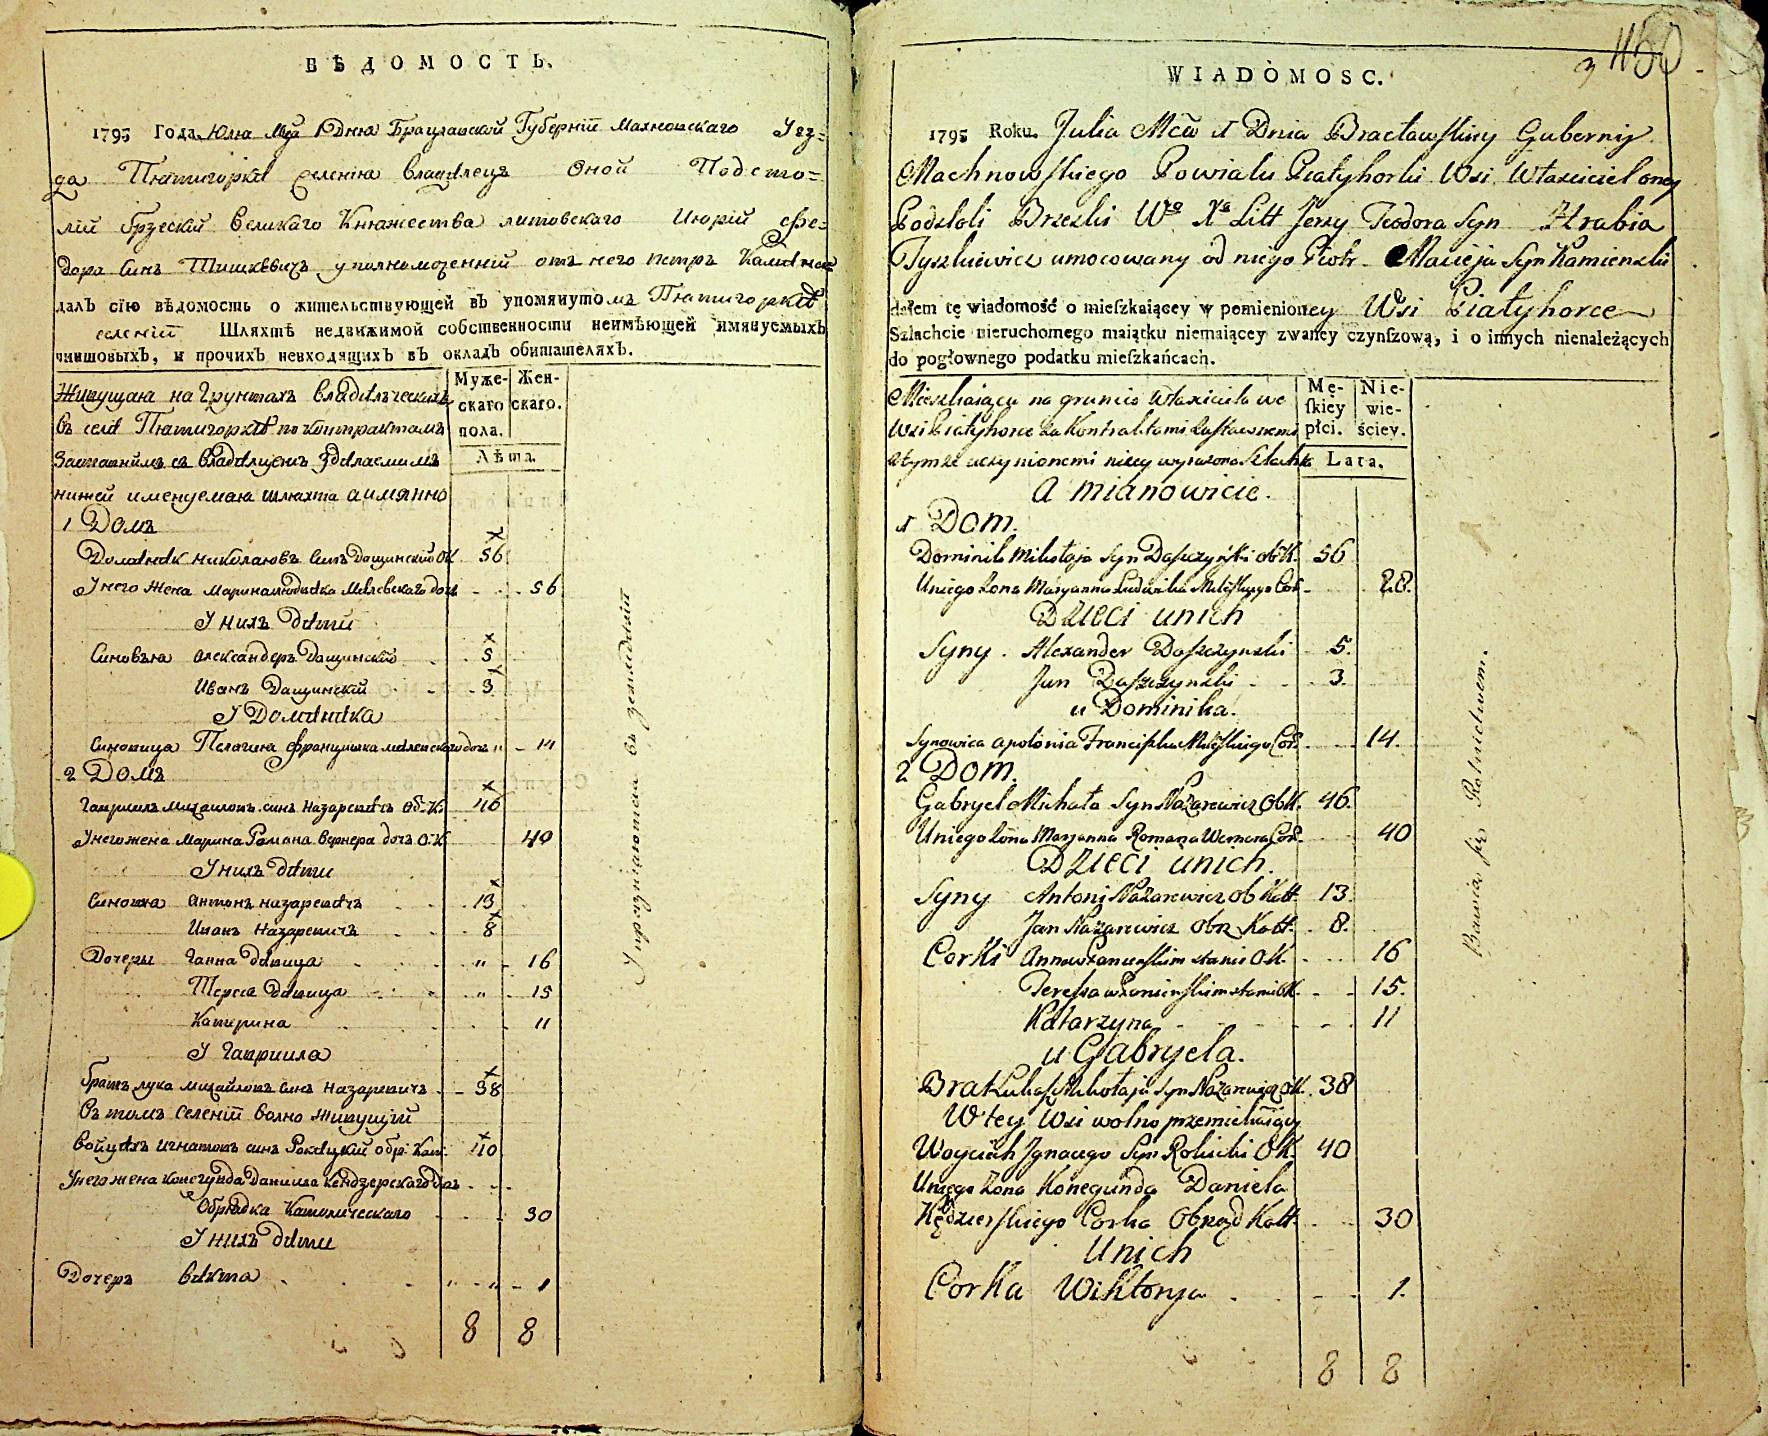 ВѢДОМОСТЬ.
1795 Года Юлїя Мца 1 Дня Брацлавской Губернїи Махновскаго Уез=
да Пятигорки селенїя владѣлецъ оной Подсто=
лїй Брзескїй Великаго Княжества литовскаго Июрїй Фе=
дора Синъ Тишкѣвичъ уполномоченнїй отъ него петръ
далъ сїю вѣдомость о жительствующей въ упомянутомъ Пятигорки
селенїи Шляхтѣ недвижимой собственности неимѣющей имянуемыхъ
чиншовыхъ, и прочихъ невходящихъ въ окладъ обитателяхъ.
Муже-
скаго
пола.
Жен-
скаго.
Лѣта.
Живущая на Грунтахъ владѣлческихъ
въ селѣ Пятигоркѣ по контрактамъ
Заставнимъ съ владѣлцемъ здѣлаемимъ
нижей именуемая шляхта а имянно
1 Домъ
Доминик николаювъ Синъ Дощинский О.К. 56
У него Жена Марина людвика Милевскаго дочь 56
У нихъ дѣти
Синовья Александеръ Дащинский 5
Иванъ Дащинскїй 3
У Доминика
Синовица Пелагия францишка милевскаго дочь 14
2 Домъ
Гавриилъ Михаиловъ синъ Назаревичъ Об. К. 46
У него жена Марина Романа вернера дочь О. К. 40
У нихъ дѣти
Синовья антонъ назаревичъ 13
Иванъ Назаревичъ 8
Дочеры Ганна дѣвица 16
Тереса дѣвица 15
Катерина 11
У Гавриила
братъ лука михайловъ Синъ Назаревичъ 38
въ томъ селенїи волно живущїй
войцѣхъ игнатовъ синъ Ролицкїй обр: Кат. 40
У него жена конегунда Даниила кендзерскаго дочъ
Обрядка Католическаго 30
У нихъ дѣти
Дочеръ викта 1
8 8
Упражняются въ земледѣлїи
3 1150
WIADOMOSC.
1795 Roku. Julia Mca 1 Dnia Bractawskiey Gubernij
Machnowskiego Powiatu Piatyhorki Wsi Własciciel oney
Podstoli Brzeski Wo Xa Litt Jerzy Teodora Syn Hrabia
Tyszkiewicz umocowany od niego Piotr Macieja Syn Kamienski
dałem tę wiadomość o mieſzkaiącey w pomienioney Wsi Piatyhorce
Szlachcie nieruchomego maiątku niemaiącey zwaney czynſzową, i o innych nienależących
do pogłownego podatku mieſzkańcach.
Mę-
ſkiey
płci.
Nie-
wie-
ściey.
Lata.
Mieszkaiąca na gruncie Własciciela we
Wsi Piatyhorce za Kontraktami Zastawnemi
z tymże uczynionemi niżey wyrażona Szlachta
A mianowicie.
1 Dom.
Dominik Mikołaja Syn Daszczyński ob K. 56
U niego Zona Maryanna Ludwika Milewskiego Cor. 28.
Dzieci unich
Syny. Alexander Daszczynski 5.
Jan Daszczynski 3.
u Dominika.
Synowica apolonia Franciszka Milewskiego Cor. 14.
2 Dom.
Gabryel Michała Syn Nazarewicz Ob K. 46.
U niego żona Maryanna Romana Wernera Cor. 40
Dzieci unich.
Syny Antoni Nazarewicz ob Katt. 13.
Jan Nazarewicz Obrz. Katt. 8.
Corki Anna w Panienskim stanie O.K. 16
Teressa w Panienskim stanie O.K. 15.
Katarzyna 11
u Gabryela.
Brat Lukasz Mikołaja Syn Nazarewicz O.K. 38
W tey Wsi wolno przemieszkający
Woyciech Jgnacego Syn Rolicki O.K. 40
U niego żona Konegunda Daniela
Kędzierskiego Corka Obrząd Katt. 30
Unich
Corka Wiktorya 1.
8 8
Bawią się Rolnictwem.